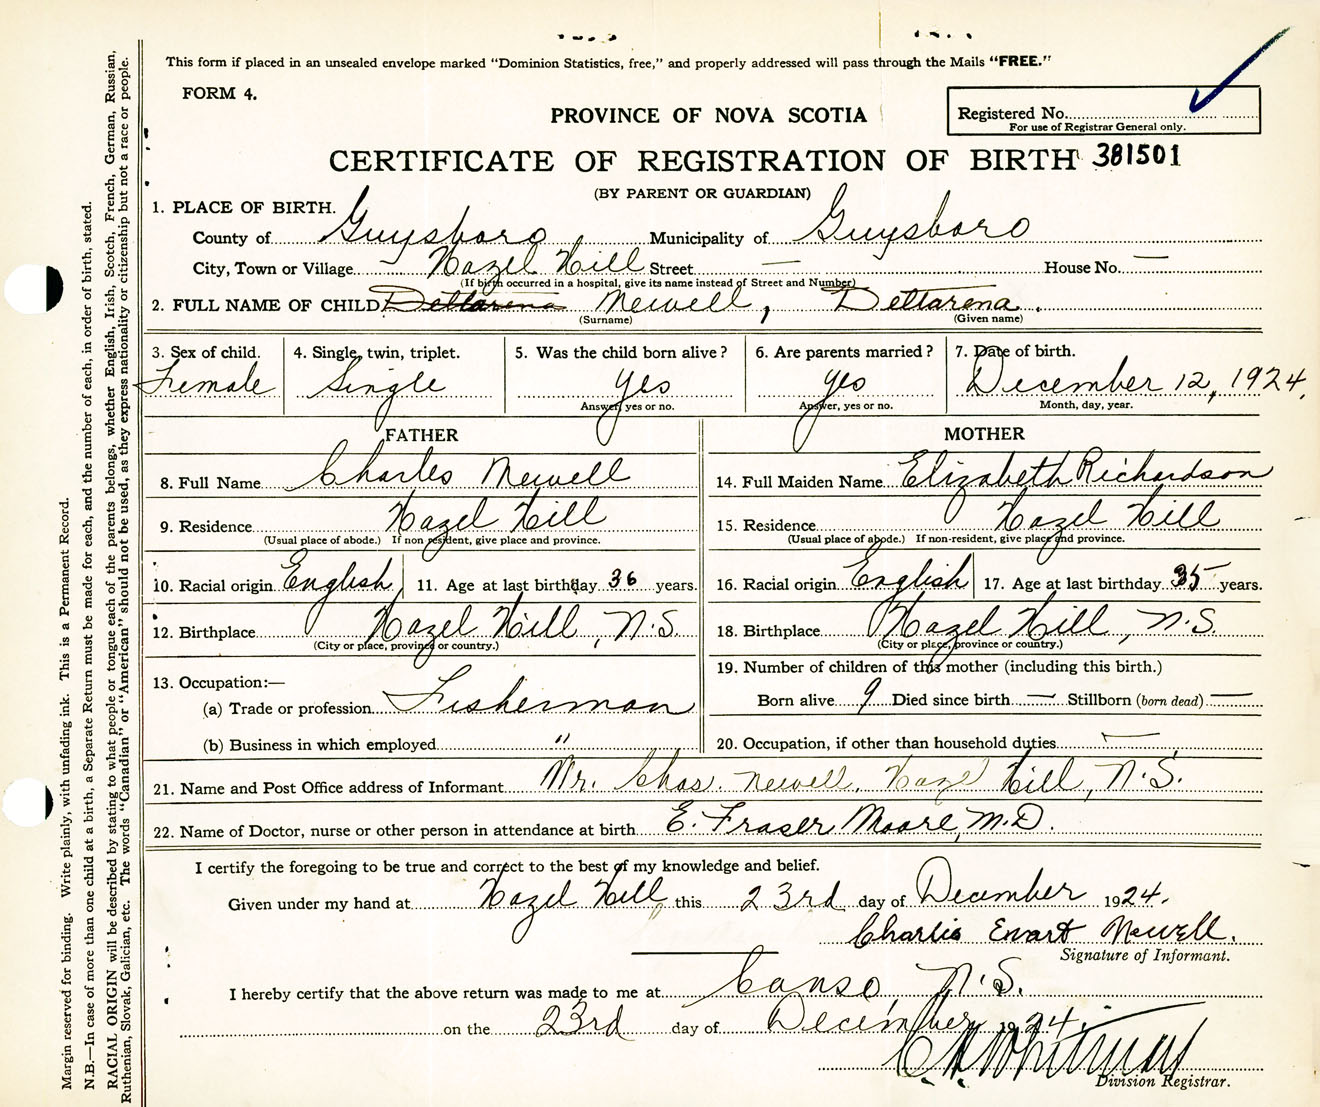 This form if placed in an unsealed envelope marked "Dominion Statistics, free," and properly addressed will pass through the Mails "FREE."
FORM 4.
Registered No.
For use of Registrar General only.
PROVINCE OF NOVA SCOTIA
CERTIFICATE OF REGISTRATION OF BIRTH 381501
(BY PARENT OR GUARDIAN)
1. PLACE OF BIRTH.
County of Guysboro Municipality of Guysboro
City, Town or Village Hazel Hill Street — House No. —
(If birth occurred in a hospital, give its name instead of Street and Number)
2. FULL NAME OF CHILD Dettarena Newell, Dettarena.
(Surname) (Given name)
3. Sex of child. 4. Single, twin, triplet. 5. Was the child born alive? 6. Are parents married? 7. Date of birth.
Female Single Yes Yes December 12, 1924.
Answer, yes or no. Answer, yes or no. Month, day, year.
FATHER MOTHER
8. Full Name Charles Newell 14. Full Maiden Name Elizabeth Richardson
9. Residence Hazel Hill 15. Residence Hazel Hill
(Usual place of abode.) If non resident, give place and province. (Usual place of abode.) If non-resident, give place and province.
10. Racial origin English 11. Age at last birthday 36 years. 16. Racial origin English 17. Age at last birthday 35 years.
12. Birthplace Hazel Hill, N.S. 18. Birthplace Hazel Hill, N.S.
(City or place, province or country.) (City or place, province or country.)
13. Occupation:— 19. Number of children of this mother (including this birth.)
(a) Trade or profession Fisherman Born alive 9 Died since birth — Stillborn (born dead) —
(b) Business in which employed " 20. Occupation, if other than household duties —
21. Name and Post Office address of Informant Mr. Chas. Newell, Hazel Hill, N.S.
22. Name of Doctor, nurse or other person in attendance at birth E. Fraser Moore, M.D.
I certify the foregoing to be true and correct to the best of my knowledge and belief.
Given under my hand at Hazel Hill this 23rd day of December 1924.
Charlie Ewart Newell.
Signature of Informant.
I hereby certify that the above return was made to me at Canso, N.S.
on the 23rd day of December 1924.
C. H. Whitman
Division Registrar.
Margin reserved for binding. Write plainly, with unfading ink. This is a Permanent Record.
N.B.—In case of more than one child at a birth, a Separate Return must be made for each, and the number of each, in order of birth, stated.
RACIAL ORIGIN will be described by stating to what people or tongue each of the parents belongs, whether English, Irish, Scotch, French, German, Russian,
Ruthenian, Slovak, Galician, etc. The words "Canadian" or "American" should not be used, as they express nationality or citizenship but not a race or people.